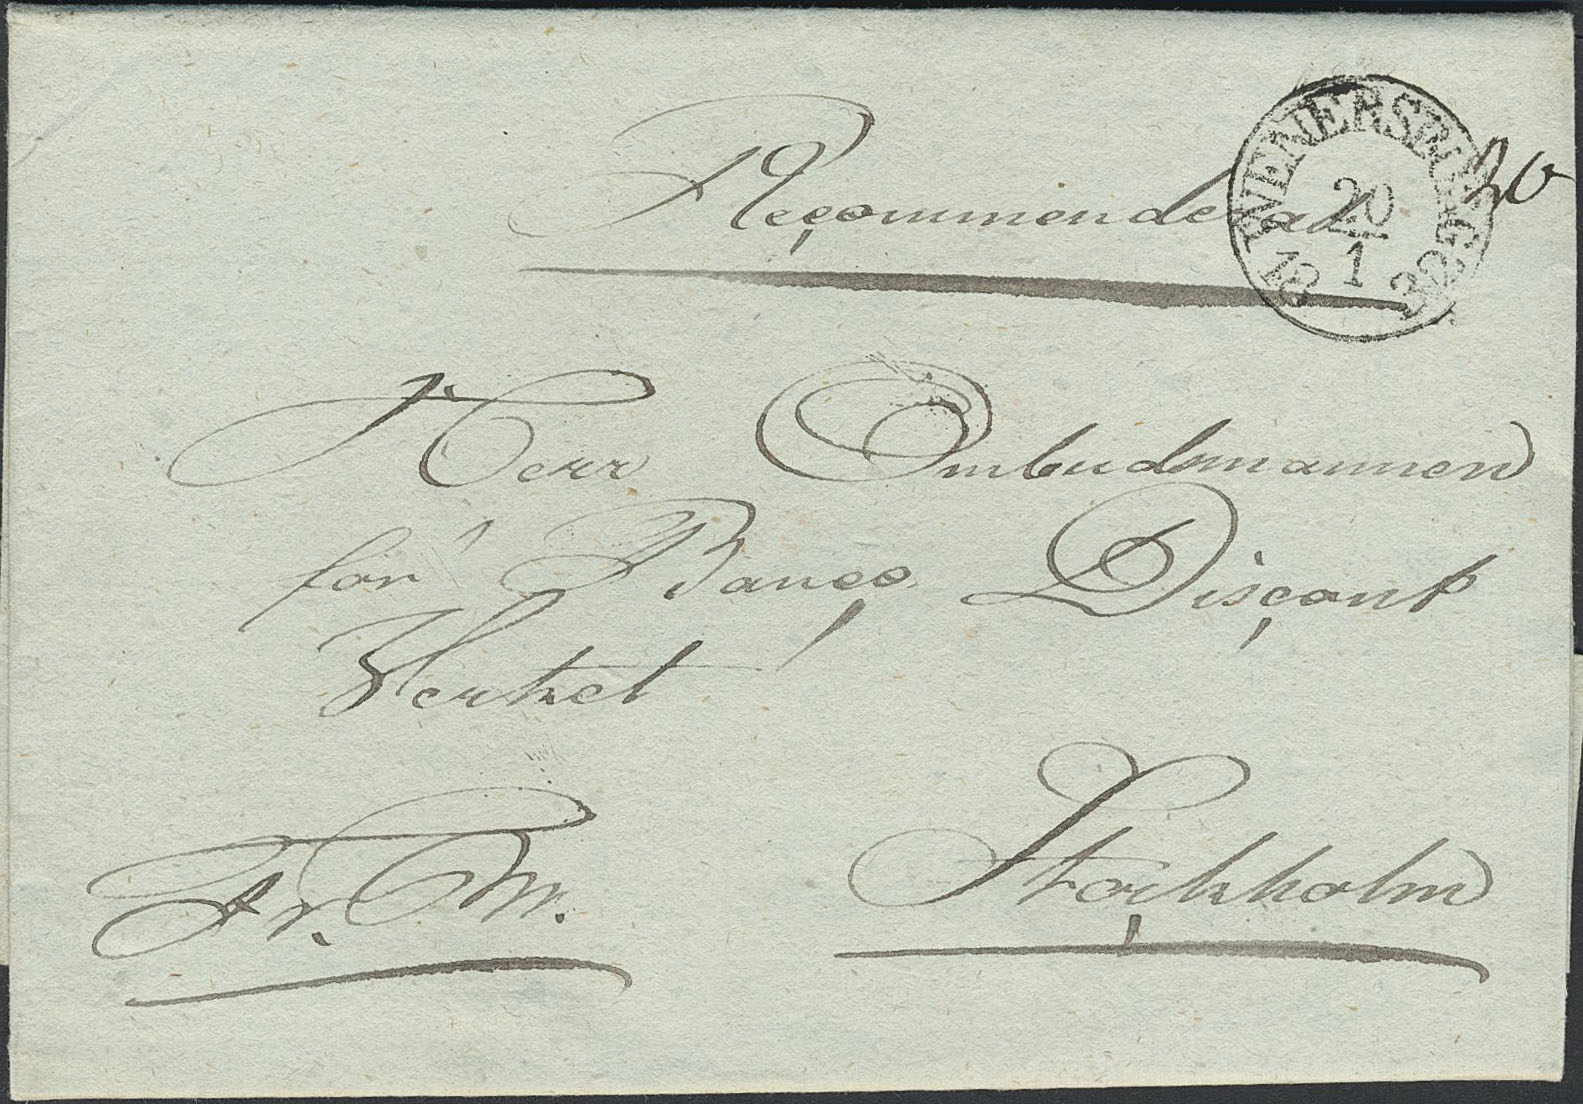 Recommenderad
WENERSBORG
20
1
18 32
Herr Ombudsmannen
för Banco Discont
Verket
Stockholm